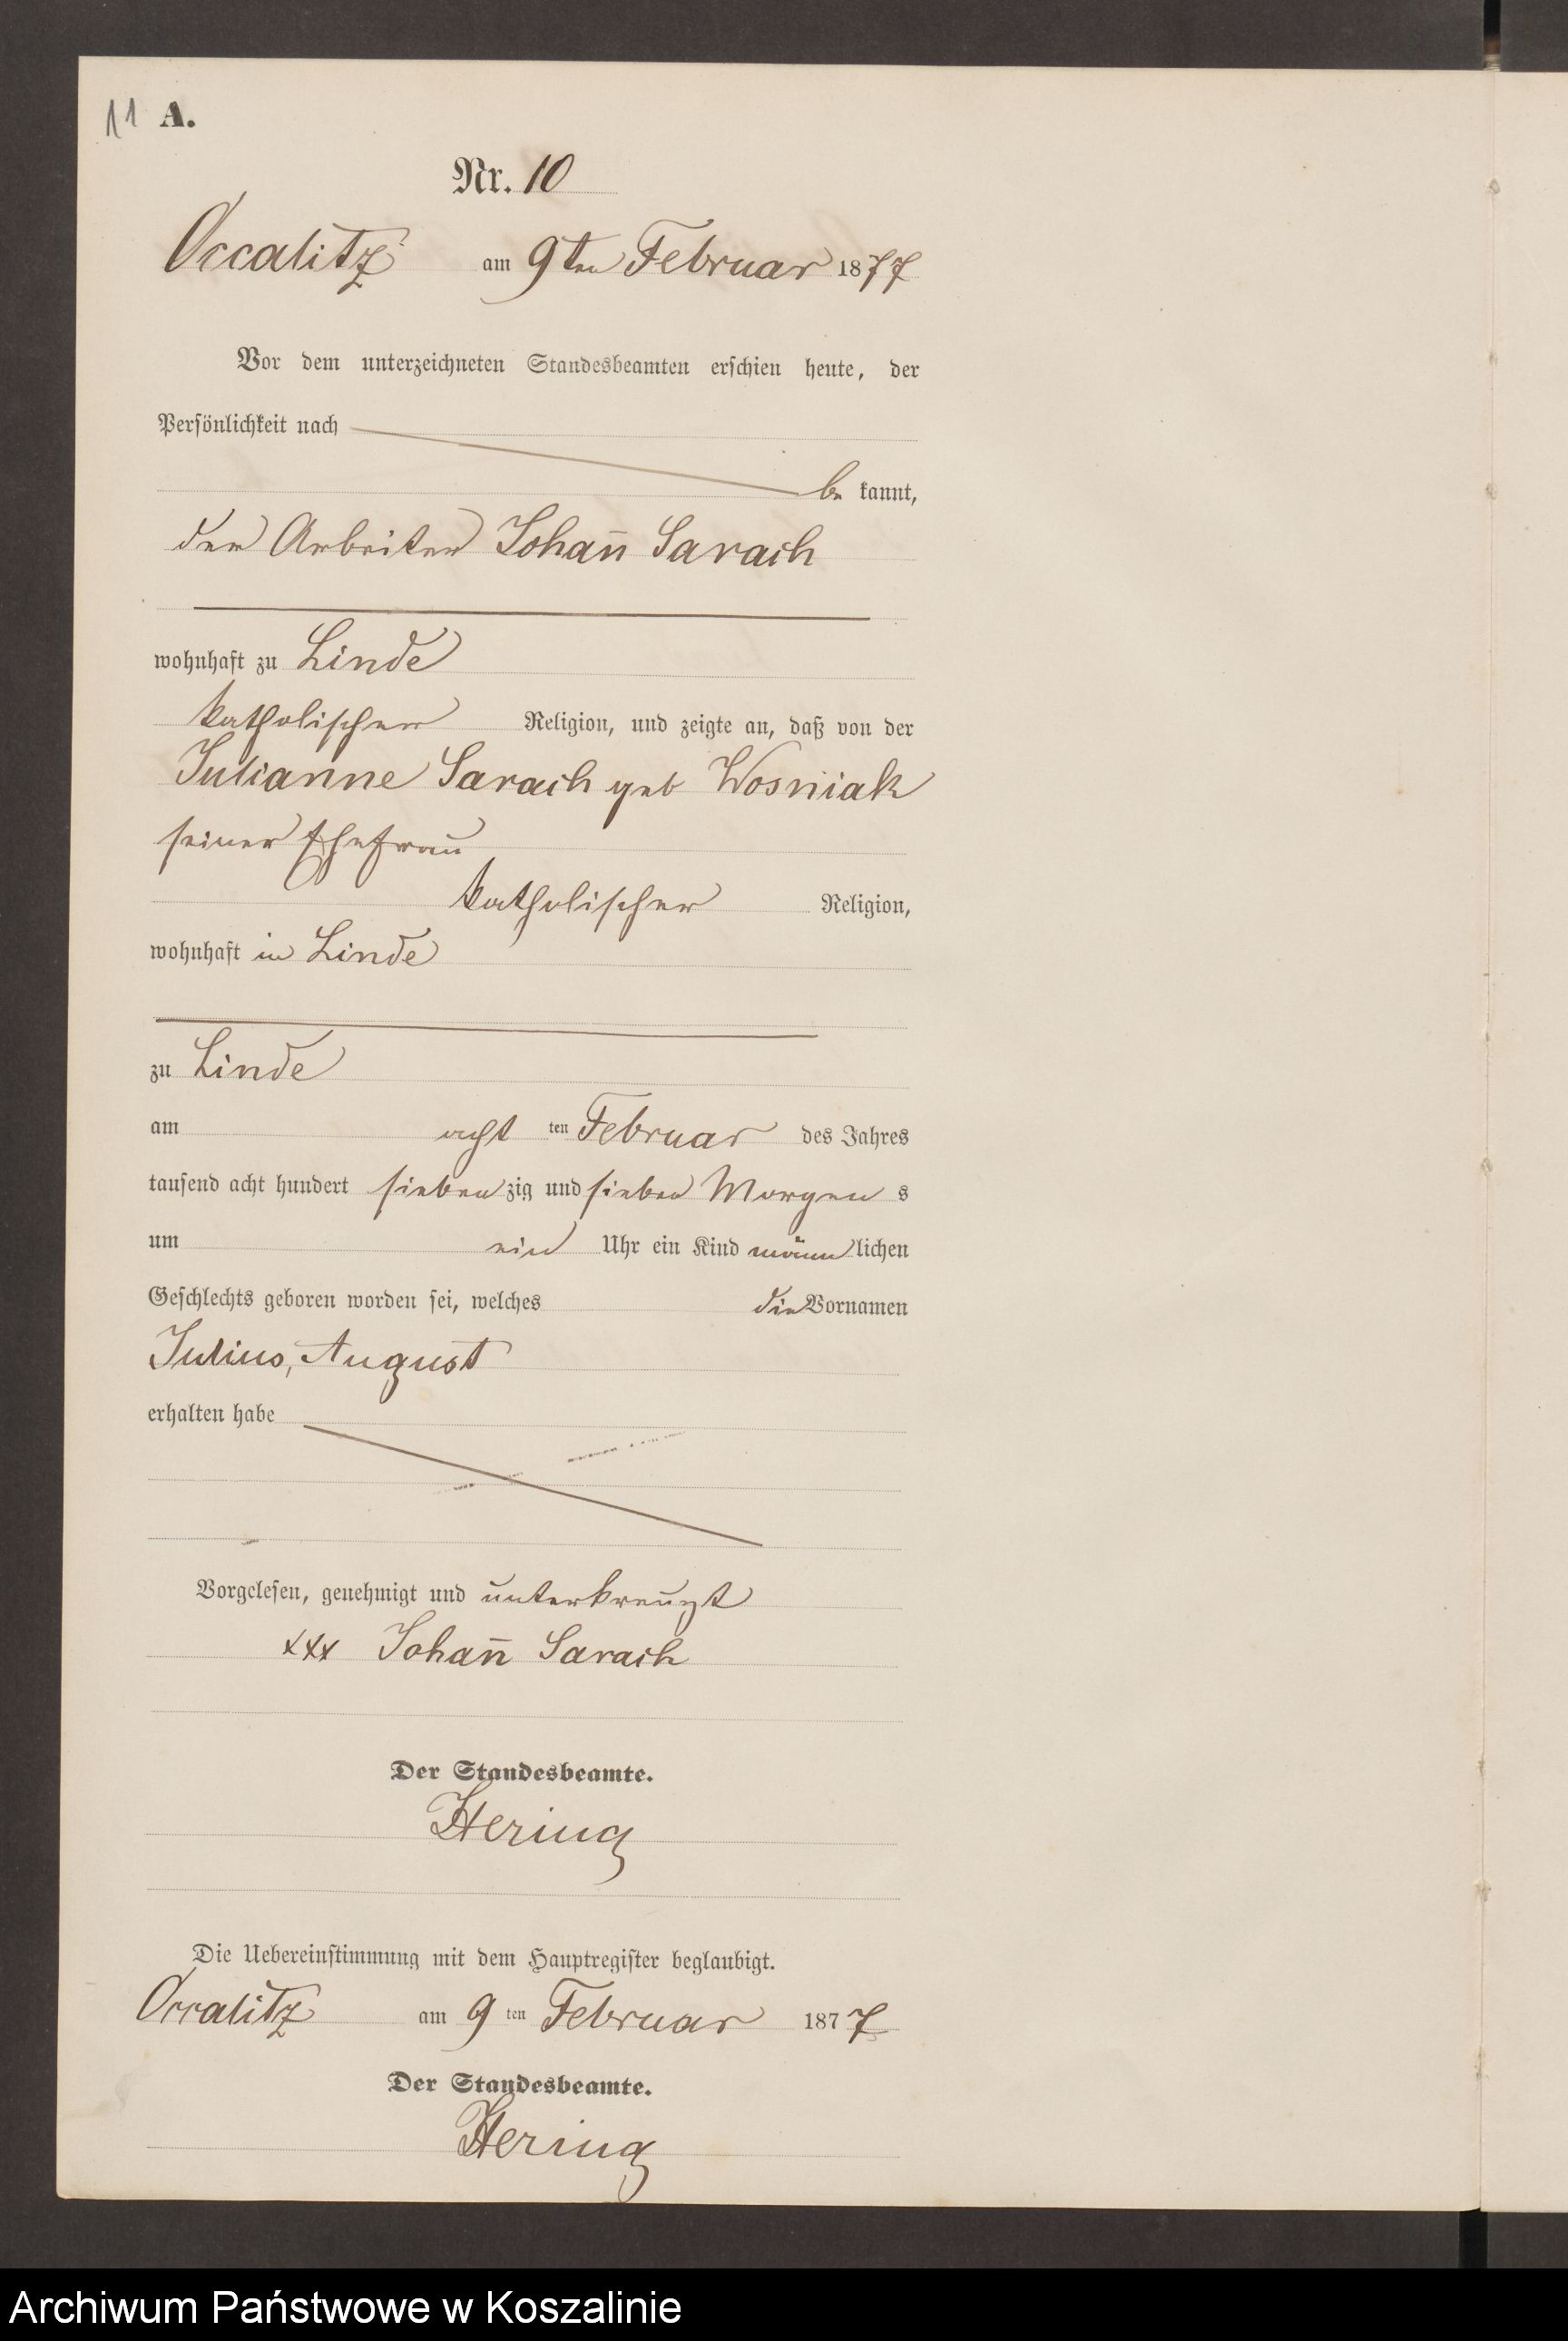 11 A.
Nr. 10
Occalitz am 9ten Februar 1877
Vor dem unterzeichneten Standesbeamten erschien heute, der
Persönlichkeit nach
be kannt,
der Arbeiter Johan̄ Sarach
wohnhaft zu Linde
katholischer Religion, und zeigte an, daß von der
Julianne Sarach geb Wosniak
seiner Ehefrau
katholischer Religion,
wohnhaft in Linde
zu Linde
am acht ten Februar des Jahres
tausend acht hundert sieben zig und sieben Morgen s
um ein Uhr ein Kind männ lichen
Geschlechts geboren worden sei, welches die Vornamen
Julius, August
erhalten habe
Vorgelesen, genehmigt und unterkreuzt
xxx Johan̄ Sarach
Der Standesbeamte.
Hering
Die Uebereinstimmung mit dem Hauptregister beglaubigt.
Occalitz am 9 ten Februar 1877
Der Standesbeamte.
Hering
Archiwum Państwowe w Koszalinie